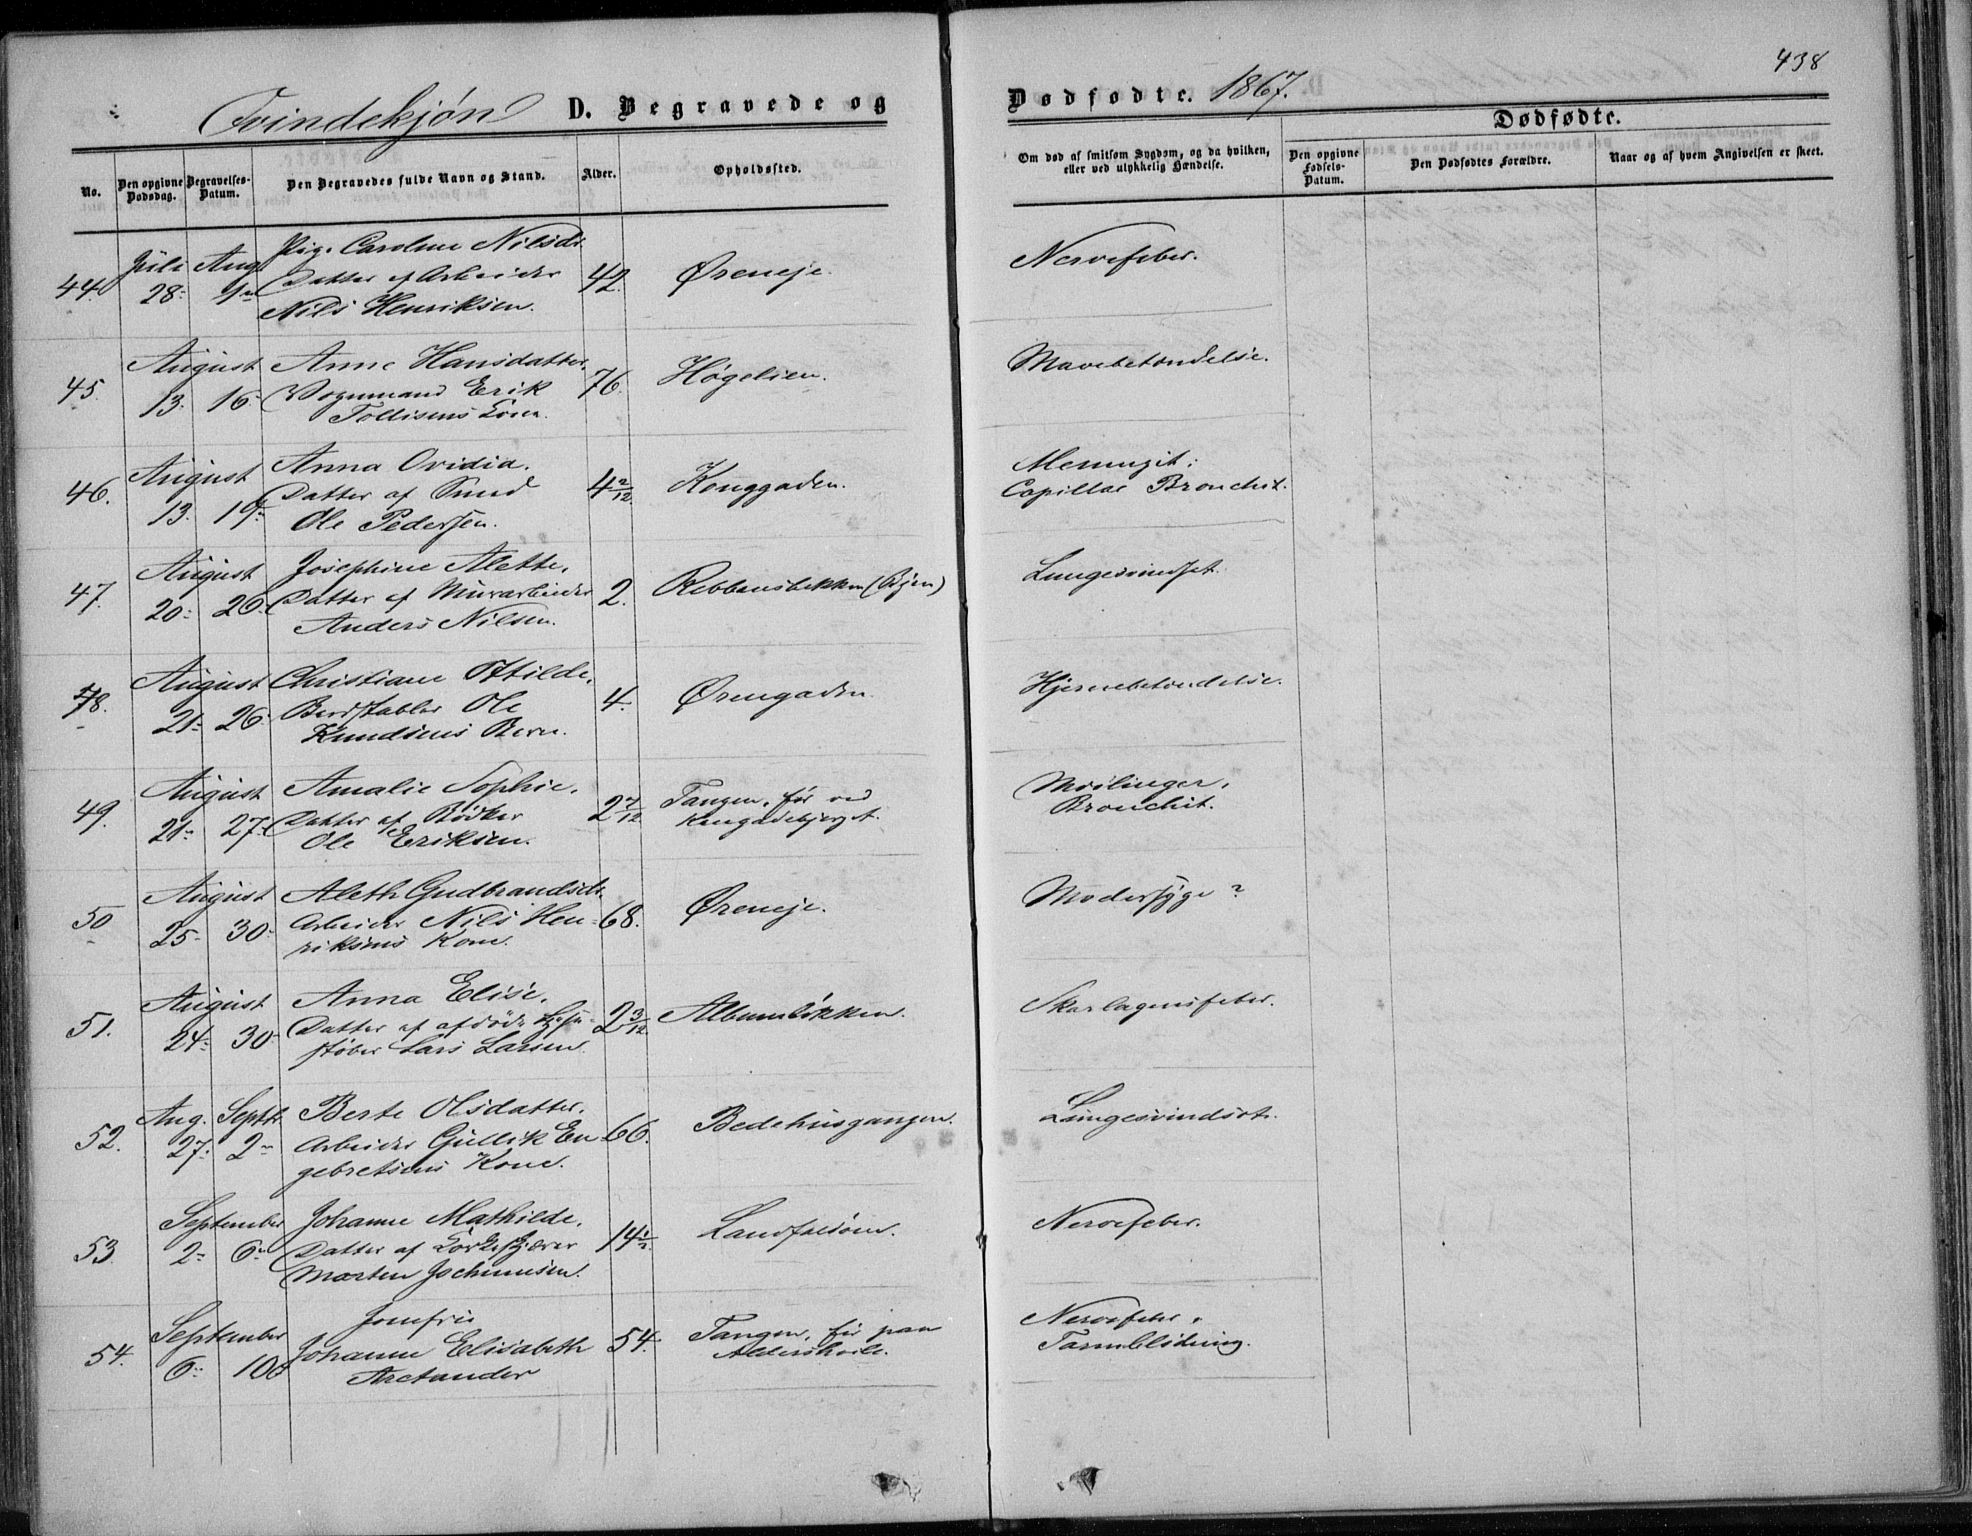 438
Qvindekjøn D. Begravede og
Dødfødte. 1867.
Dødfødte.
No.
Den opgivne Dødsdag.
Begravelses-Datum.
Den Begravedes fulde Navn og Stand.
Alder.
Opholdssted.
Om død af smitsom Sygdom, og da hvilken,
eller ved ulykkelig Hændelse.
Den opgivne Fødsels-Datum.
Den Dødfødtes Forældre.
Naar og af hvem Angivelsen er skeet.
44. Juli 28 Aug. 1 Pige Caroline Nilsdr.
Datter af Arbeider
Nils Henriksen.
42. Øreneje. Nervefeber.
45. August 13. 16. Anne Hansdatter.
Vognmand Erik
Tollisens Kone.
76. Høgelien. Mavebetændelse.
46. August 13. 19. Anna Ovidia.
Datter af Smed
Ole Pedersen.
4 2/12 Konggaden. Meningit:
Capillar Bronchit.
47. August 20. 26. Josephine Alette.
Datter af Murarbeider
Anders Nilsen.
2. Rebbansbekken (Byen) Lungesvindsot.
48. August 21. 26. Christiane Othilde.
Bordstabler Ole
Knudsens Barn.
4. Ørengaden. Hjernebetændelse.
49. August 21. 27. Amalie Sophie.
Datter af Bødker
Ole Eriksen.
Tangen, før ved
Mæslinger,
Bronchit.
50 August 25. 30. Aleth Gudbrandsdr.
Arbeider Nils Hen-
riksens Kone.
68. Øreneje. Modersyge?
51. August 24. 30. Anna Elise.
Datter af afdøde
støber Lars Larsen.
2 3/12 Albumløkken. Skarlagensfeber.
52. Aug. 27. Septbr. 2 Berte Olsdatter.
Arbeider Gullik En-
gebretsens Kone.
66. Bedehusgangen. Lungesvindsot.
53. September 2. 6. Johanne Mathilde.
Datter af
Morten Jochumsen.
14 1/2. Landfaldøen. Nervefeber.
54. September 6. 10. Jomfru
Johanne Elisabeth
Arctander
54. Tangen, før paa
Aldershvile.
Nervefeber,
Tarmblødning.